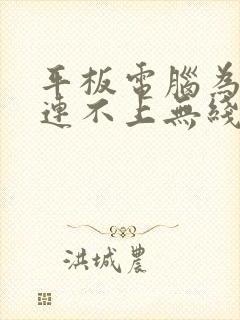 平板電腦為
連不上無綫
洪城農